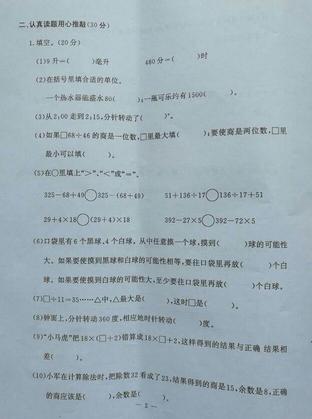 二、认真读题用心推敲(30分)
1.填空。(20分)
(1)9升=( )毫升 480分=( )时
(2)在括号里填合适的单位。
一个热水器能盛水80( );一瓶可乐约有1500( )。
(3)从2:00走到2:15,分针转动了( )°。
(4)如果□68÷46的商是一位数,□里最大填( );要使商是两位数,□里
最小可以填( )。
(5)在○里填上“>”、“<”或“=”。
325-68+49○325-(68+49) 51+136÷17○136÷17+51
29+4×18○(29+4)×18 392-27×5○392-72×5
(6)口袋里有6个黑球、4个白球,从中任意摸一个球,摸到( )球的可能性
大。如果要使摸到黑球和白球的可能性相等,要往口袋里再放( )个白
球。如果要使摸到白球的可能性大,至少要往口袋里再放( )个白球。
(7)□÷11=35……△中,△最大是( ),这时□是( )。
(8)钟面上,分针转动360度,相应地时针转动( )度。
(9)“小马虎”把18×(□+2)错算成18×□+2,这样得到的结果与正确结果相
差( )。
(10)小军在计算除法时,把除数32看成了23,结果得到的商是15,余数是8,正确
的商应该是( ),余数是( )。
— 2 —